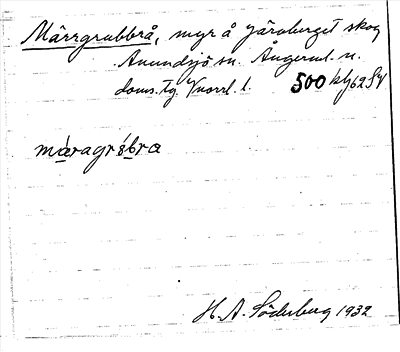 Märrgrubbrå, myr å Järnberget skog
Anundsjö sn. Ångerml. n.
doms. tg. Vnorrl. l. 500 kly 62 SV
måragrübra
H. A. Söderberg 1932